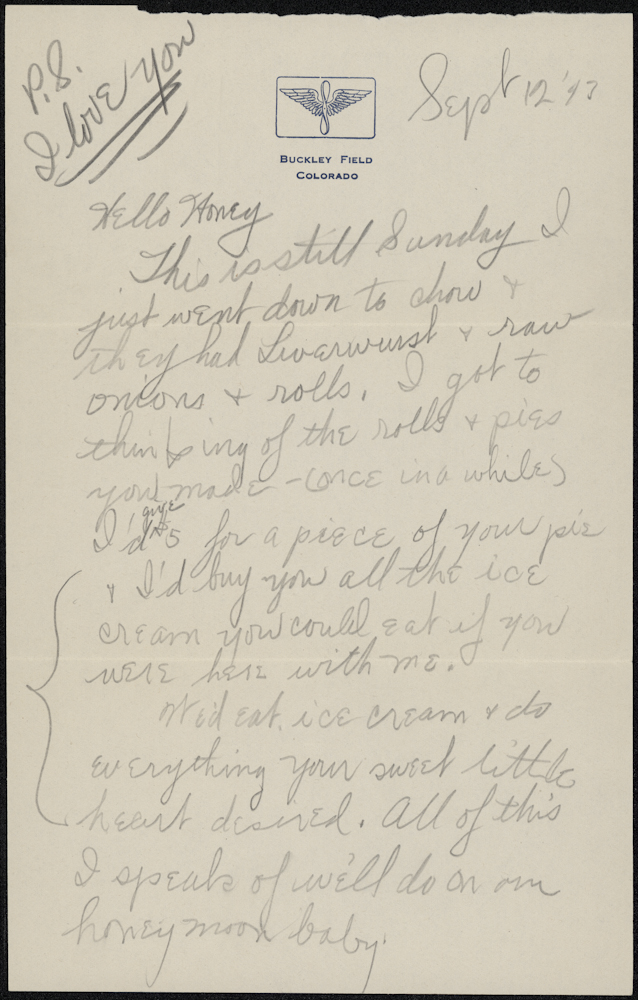 P.S.
I love you
Sept 12 '43
BUCKLEY FIELD
COLORADO
Hello Honey
This is still Sunday I
just went down to chow &
they had Liverwurst & raw
onions & rolls. I got to
thinking of the rolls & pies
you made - (once in a while)
I'd give $5 for a piece of your pie
& I'd buy you all the ice
cream you could eat if you
were here with me.
We'd eat ice cream & do
everything your sweet little
heart desired. All of this
I speak of we'll do on our
honeymoon baby.